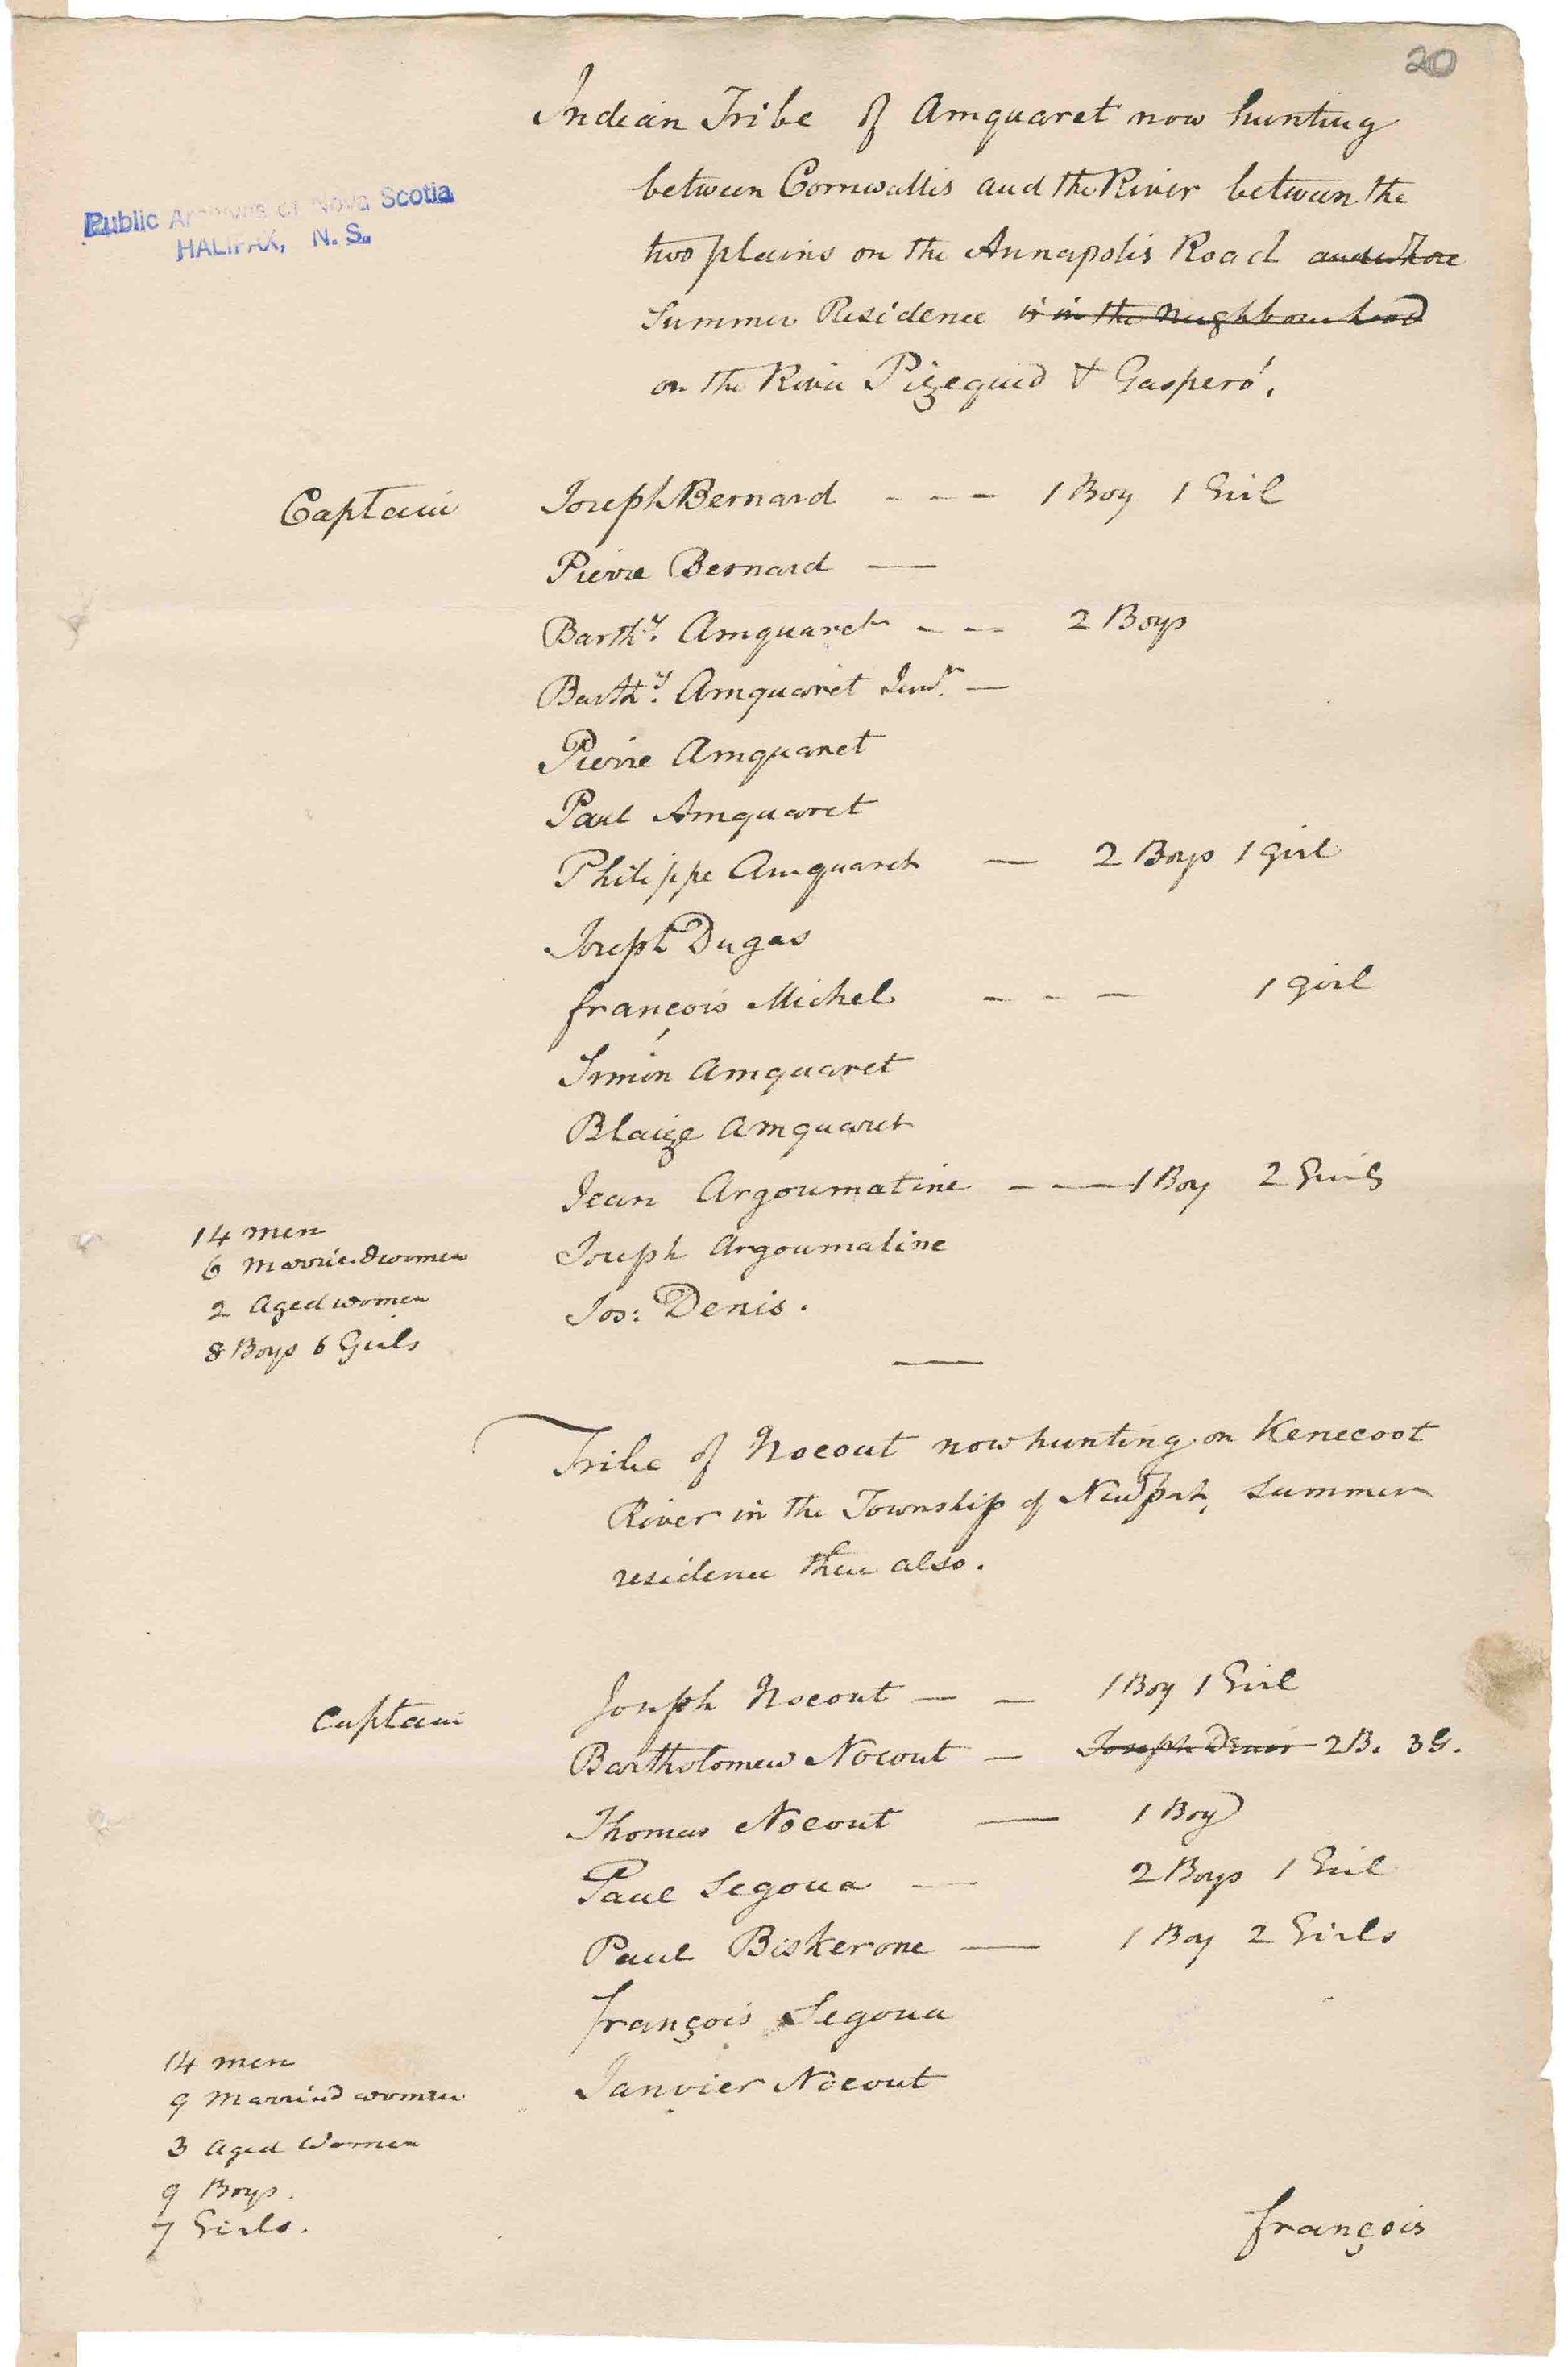 20
Indian Tribe of Amquaret now hunting
between Cornwallis and the River between the
two plains on the Annapolis Road and whose
Summer Residence is in the neighbourhood
on the River Pizequid & Gasperó.
Public Archives of Nova Scotia
HALIFAX, N. S.
Captain Joseph Bernard - - - 1 Boy 1 Girl
Pierre Bernard —
Barthy. Amquaret - - - 2 Boys
Barthy. Amquaret Junr. —
Pierre Amquaret
Paul Amquaret
Philippe Amquaret — 2 Boys 1 girl
Joseph Dugas
françois Michel - - - 1 girl
Simon Amquaret
Blaize Amquaret
Jean Argoumatine - - — 1 Boy 2 Girls
Joseph Argoumatine
Jos: Denis.
14 men
6 Married women
2 Aged women
8 Boys 6 Girls
Tribe of Nocout now hunting on Kenecoot
River in the Township of Newport, summer
residence there also.
Captain Joseph Nocout — — 1 Boy 1 Girl
Bartholomew Nocout — Joseph Denis 2 B. 3 G.
Thomas Nocout — 1 Boy
Paul Segoua — 2 Boys 1 Girl
Paul Biskerone — 1 Boy 2 Girls
françois Segoua
Janvier Nocout
14 men
9 Married women
3 Aged Women
9 Boys.
7 Girls.
françois